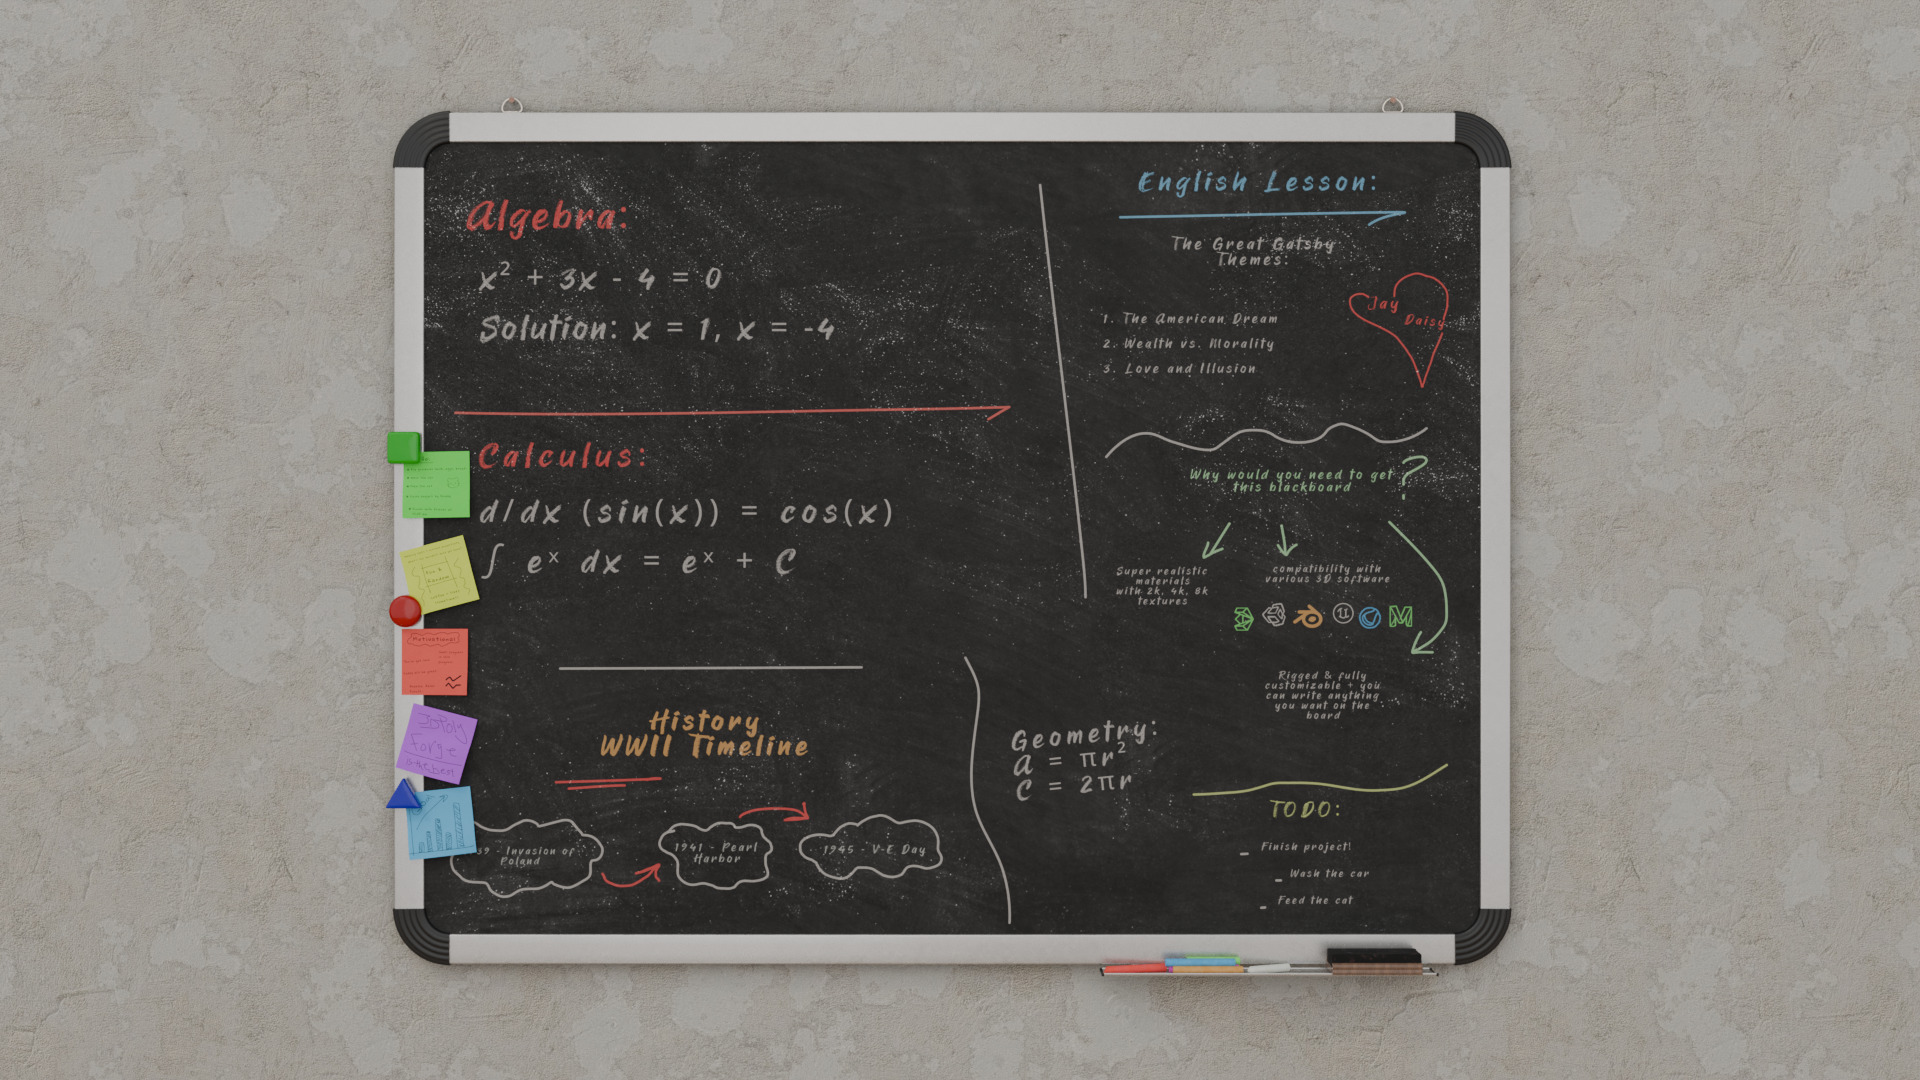 Algebra:
x² + 3x - 4 = 0
Solution: x = 1, x = -4
Calculus:
d/dx (sin(x)) = cos(x)
∫ eˣ dx = eˣ + C
History
WWII Timeline
39 - Invasion of
Poland
1941 - Pearl
Harbor
1945 - V-E Day
English Lesson:
The Great Gatsby
Themes:
1. The American Dream
2. Wealth vs. Morality
3. Love and Illusion
Jay
Daisy
Why would you need to get
this blackboard
?
Super realistic
materials
with 2k, 4k, 8k
textures
compatibility with
various 3D software
Rigged & fully
customizable + you
can write anything
you want on the
board
Geometry:
A = πr²
C = 2πr
TODO:
- Finish project!
- Wash the car
- Feed the cat
Motivational